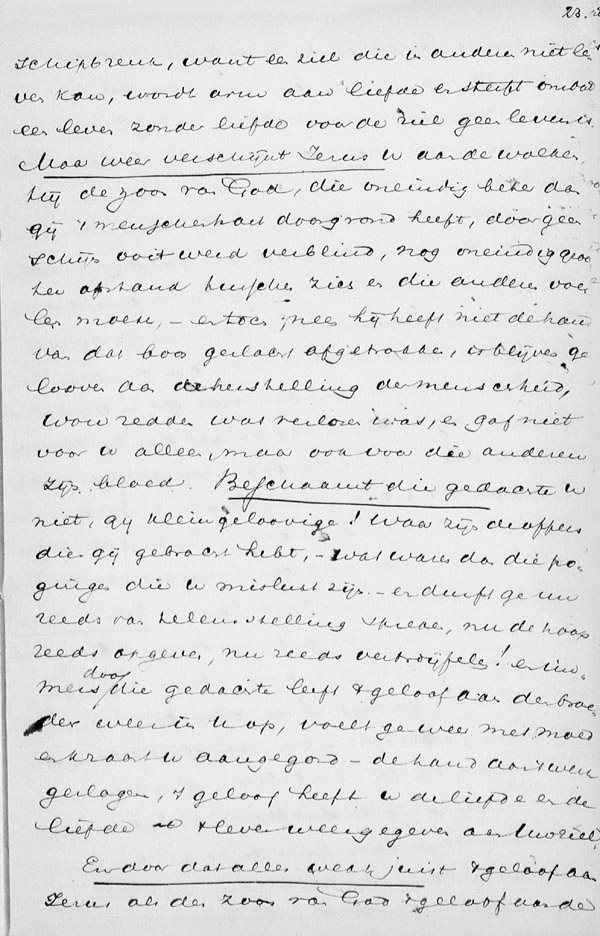 23.
schipbreuk, want een ziel die in anderen niet le
ven kan, wordt arm aan liefde en sterft omdat
een leven zonder liefde voor de ziel geen leven is.
Maar weer verschijnt Jezus u aan de wolken,
hij de zoon van God, die oneindig beter dan
gij 't menschenhart doorgrond heeft, door geen
schijn ooit werd verblind, nog oneindig groo
ter afstand tusschen zich en die anderen voe
len moest, – en toch, nee hij heeft niet de hand
van dat boos geslacht afgetrokken, is blijven ge
looven aan de herstelling der menscheid,
wou redden wat verloren was, en gaf niet
voor u alleen, maar ook voor die anderen
zijn bloed. Beschaamt die gedachte u
niet, gij kleingeloovige! Waar zijn de offers
die gij gebracht hebt, – wat waren dan die po-
gingen die u mislukt zijn – en durft ge nu
reeds van teleurstelling spreken, nu de hoop
reeds opgeven, nu reeds vertwijfelen! en im-
mers door die gedachte leeft 't geloof aan den broe-
der weer in u op, voelt ge weer met moed
en kracht u aangegord – de hand aan 't werk
geslagen, 't geloof heeft u de liefde en de
liefde 't leven weergegeven aan uw ziel.
En door dat alles werkt juist 't geloof aan
Jezus als den zoon van God 't geloof aan de